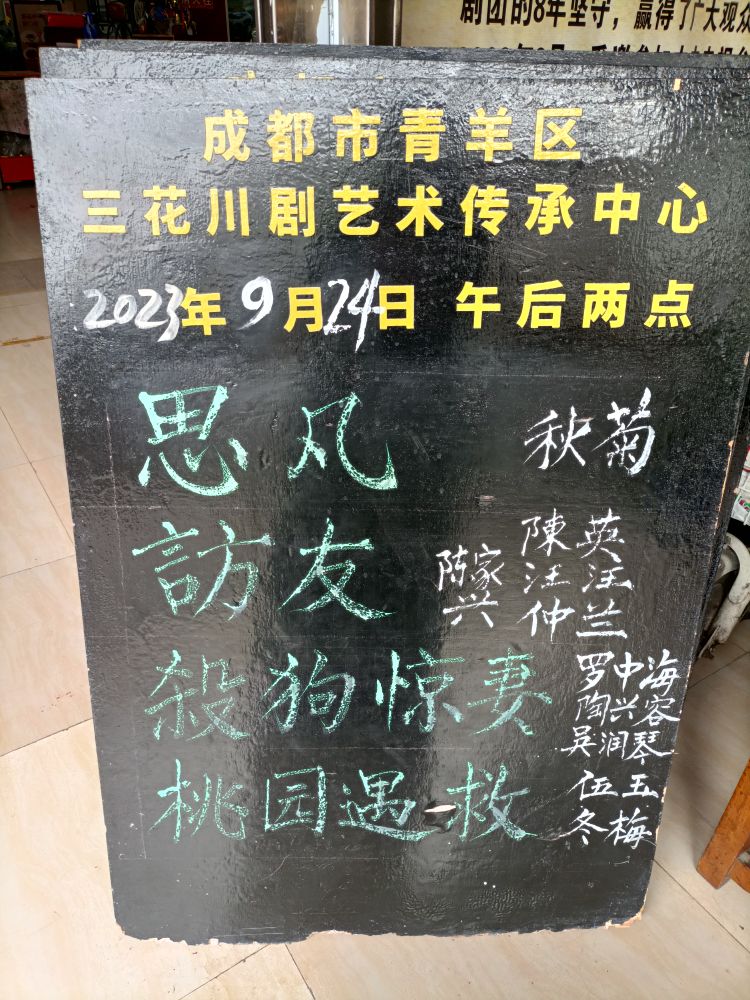 剧团的8年坚守，赢得了广大观众
成都市青羊区
三花川剧艺术传承中心
2023年9月24日 午后两点
思凡 秋菊
訪友
陈家
兴
陳 英
汪 汪
仲 兰
殺狗惊妻
罗中海
陶兴容
吴润琴
桃园遇救
伍玉
冬梅